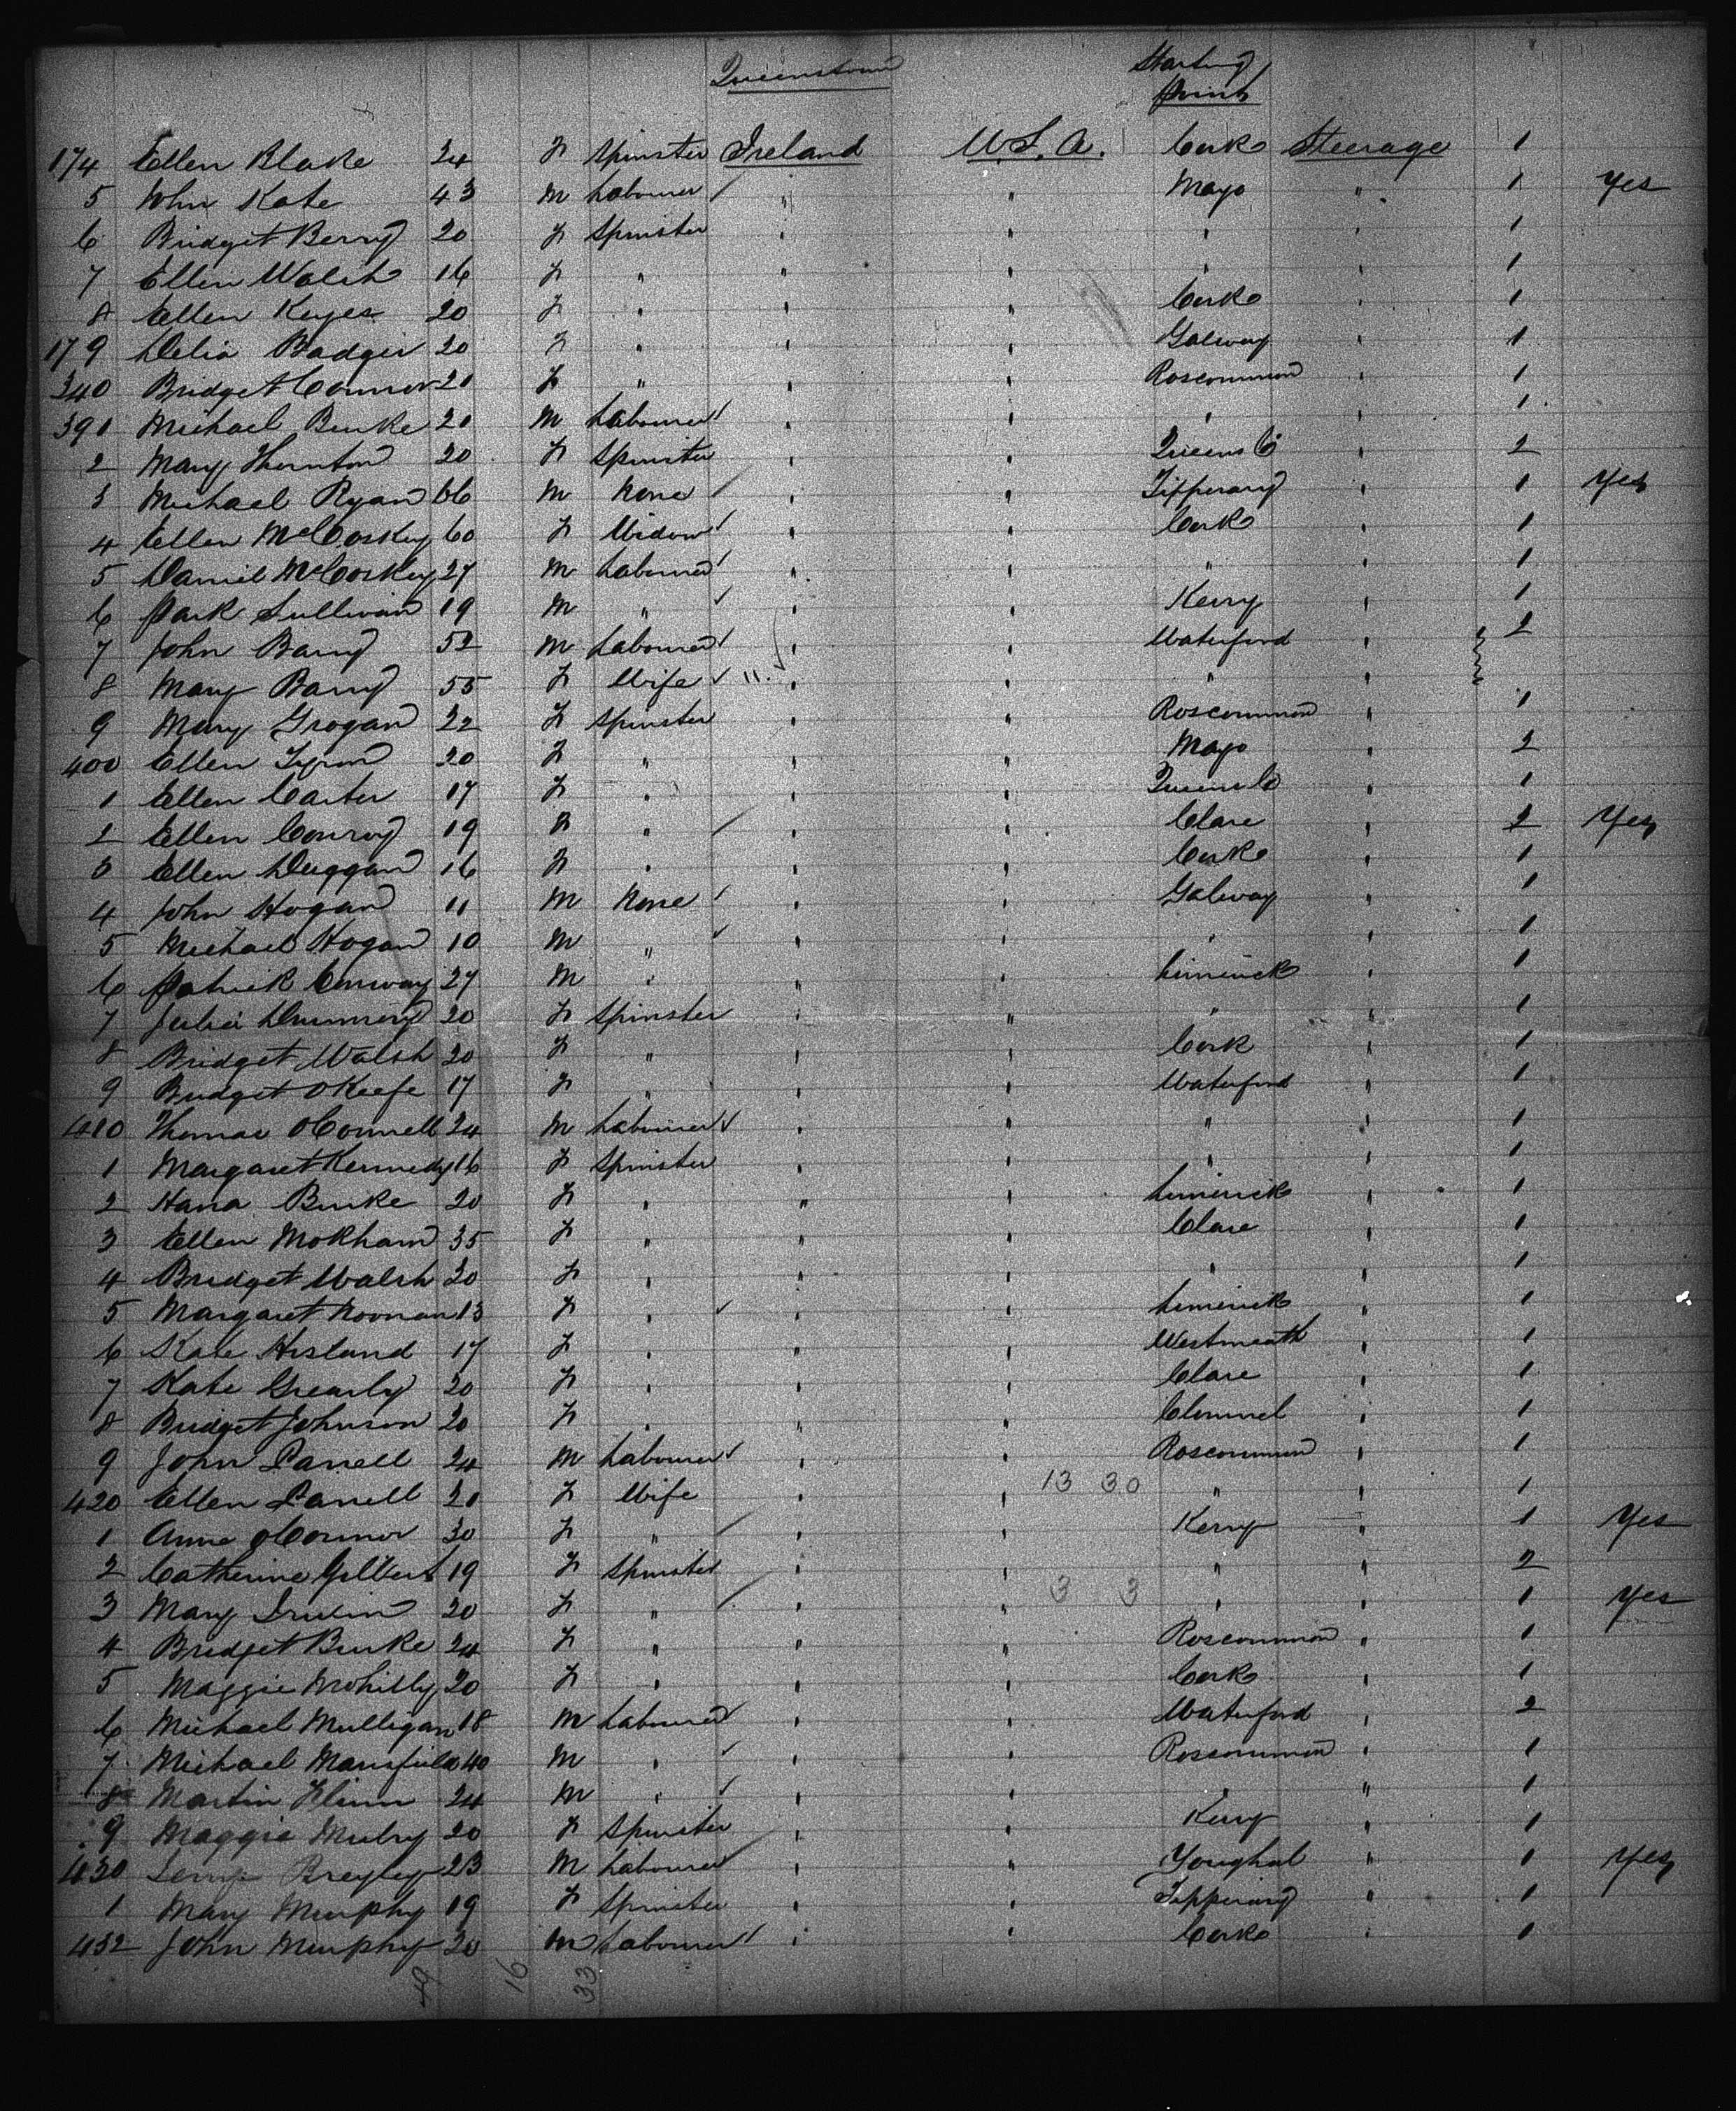 Queenstown Starting
Point
174 Ellen Blake 24 F Spinster Ireland U.S.A. Cork Steerage 1
5 John Kate 43 M Labourer / " " Mayo " 1 Yes
6 Bridget Berry 20 F Spinster " " " " 1
7 Ellen Walsh 16 F " " " " " 1
8 Ellen Keyes 20 F " " " Cork " 1
179 Delia Badger 20 F " " " Galway " 1
240 Bridget Connor 21 F " " " Roscommon " 1
391 Michael Burke 20 M Labourer / " " " " 1
2 Mary Thornton 20 F Spinster " " Queens Co " 2
3 Michael Ryan 66 M None / " " Tipperary " 1 Yes
4 Ellen McCoskey 60 F Widow / " " Cork " 1
5 Daniel McCoskey 27 M Labourer / " " " " 1
6 Park Sullivan 19 M " ✓ " " Kerry " 1
7 John Barry 52 M Labourer / " " Waterford " 2
8 Mary Barry 55 F Wife ✓ 11. " " " "
9 Mary Grogan 22 F Spinster " " Roscommon " 1
400 Ellen 20 F " " " Mayo " 2
1 Ellen Carter 17 F " " " Queens Co " 1
2 Ellen Conroy 19 F " / " " Clare " 2 Yes
3 Ellen Duggan 16 F " " " Cork " 1
4 John Hogan 11 M None / " " Galway " 1
5 Michael Hogan 10 M " ✓ " " " " 1
6 Patrick Conway 27 M " " " Limerick " 1
7 Julia 20 F Spinster " " " " 1
8 Bridget Walsh 20 F " " " Cork " 1
9 Bridget OKeefe 17 F " " " Waterford " 1
410 Thomas OConnell 24 M Labourer ✓ " " " " 1
1 Margaret Kennedy 16 F Spinster " " " " 1
2 Hana Burke 20 F " " " Limerick " 1
3 Ellen Mokham 35 F " " " Clare " 1
4 Bridget Walsh 20 F " " " " " 1
5 Margaret Noonan 13 F " ✓ " " Limerick " 1
6 Kate Hisland 17 F " " " Westmeath " 1
7 Kate Grearly 20 F " " " Clare " 1
8 Bridget Johnson 20 F " " " Clonmel " 1
9 John Parrell 24 M Labourer ✓ " " Roscommon " 1
420 Ellen Parrell 21 F Wife " " 13 30 " " 1
1 Anne OConnor 30 F " / " " Kerry " 1 Yes
2 Catherine Gilbert 19 F Spinster " " " " 2
3 Mary Irwin 20 F " / " " 3 3 " " 1 Yes
4 Bridget Burke 24 F " " " Roscommon " 1
5 Maggie 20 F " " " Cork " 1
6 Michael Mulligan 18 M Labourer ✓ " " Waterford " 2
7 Michael Mansfield 40 M " ✓ " " Roscommon " 1
8 Martin Flinn 24 M " ✓ " " " " 1
9 Maggie 20 F Spinster " " Kerry " 1
430 23 M Labourer / " " Youghal " 1 Yes
1 Mary Murphy 19 F Spinster " " Tipperary " 1
432 John Murphy 20 M Labourer / " " Cork " 1
49 16 33